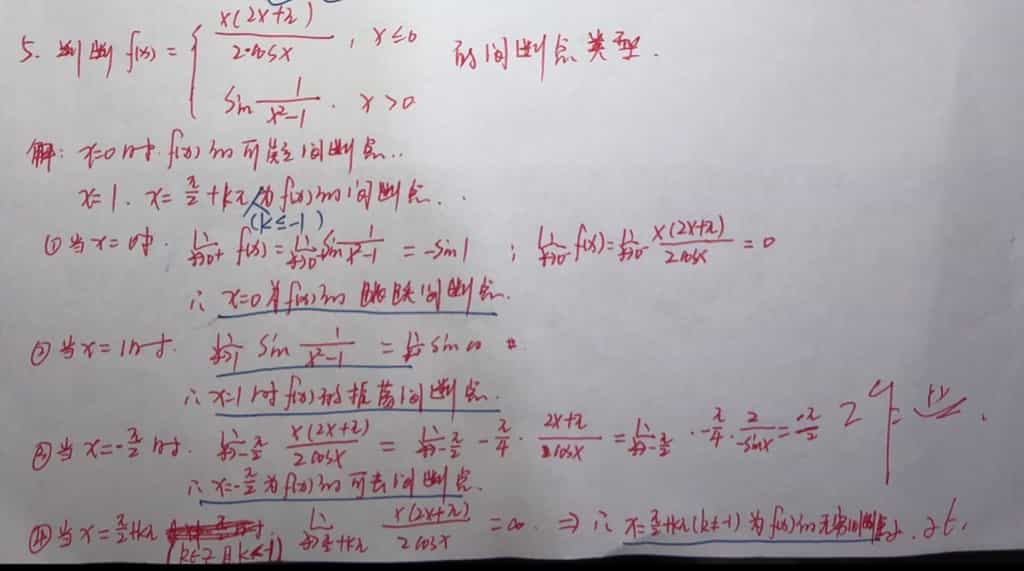 5. 判断 f(x) = { x(2x+π) / 2cosx , x≤0
sin 1/(x²-1) . x>0 的间断点类型.
解: x=0时. f(x)的可疑间断点..
x=1. x= π/2 +kπ 为f(x)的间断点..
(k≤-1)
① 当x=0时. lim x→0+ f(x) = lim x→0 sin 1/(x²-1) = -sin1 ; lim x→0- f(x) = lim x→0- x(2x+π)/2cosx = 0
∴ x=0为f(x)的跳跃间断点.
② 当x=1时. lim x→1 sin 1/(x²-1) = lim sin∞
∴ x=1时f(x)的振荡间断点.
③ 当x=-π/2时. lim x→-π/2 x(2x+π)/2cosx = lim x→-π/2 -π/4 · (2x+π)/cosx = lim x→-π/2 · -π/4 · 2/-sinx = -π/2
∴ x=-π/2为f(x)的可去间断点.
④ 当x=π/2+kπ lim x→π/2+kπ x(2x+π)/2cosx = ∞. ⇒ ∴ x=π/2+kπ(k≠-1)为f(x)的无穷间断点.
(k∈Z且k<-1)